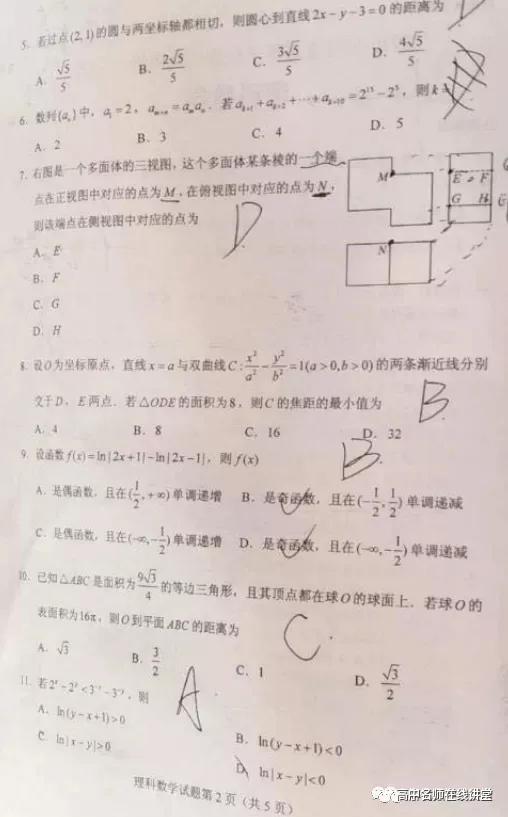 5. 若过点(2,1)的圆与两坐标轴都相切，则圆心到直线2x－y－3＝0的距离为
A. √5/5 B. 2√5/5 C. 3√5/5 D. 4√5/5
6. 数列{aₙ}中，a₁＝2，aₘ₊ₙ＝aₘaₙ．若aₖ₊₁＋aₖ₊₂＋⋯＋aₖ₊₁₀＝2¹⁵－2⁵，则k＝
A. 2 B. 3 C. 4 D. 5
7. 右图是一个多面体的三视图，这个多面体某条棱的一个端
点在正视图中对应的点为M，在俯视图中对应的点为N，
则该端点在侧视图中对应的点为
D
A. E
B. F
C. G
D. H
M
E F
G H
N
8. 设O为坐标原点，直线x＝a与双曲线C:x²/a²－y²/b²＝1(a>0,b>0)的两条渐近线分别
交于D，E两点．若△ODE的面积为8，则C的焦距的最小值为
B
A. 4 B. 8 C. 16 D. 32
9. 设函数f(x)＝ln|2x+1|－ln|2x－1|，则f(x)
B
A. 是偶函数，且在(1/2,+∞)单调递增 B. 是奇函数，且在(－1/2,1/2)单调递减
C. 是偶函数，且在(－∞,－1/2)单调递增 D. 是奇函数，且在(－∞,－1/2)单调递减
10. 已知△ABC是面积为9√3/4的等边三角形，且其顶点都在球O的球面上．若球O的
表面积为16π，则O到平面ABC的距离为
C
A. √3 B. 3/2 C. 1 D. √3/2
11. 若2ˣ－2ʸ<3⁻ˣ－3⁻ʸ，则
A
A. ln(y－x+1)>0 B. ln(y－x+1)<0
C. ln|x－y|>0 D. ln|x－y|<0
理科数学试题第2页（共5页）
高中名师在线讲堂